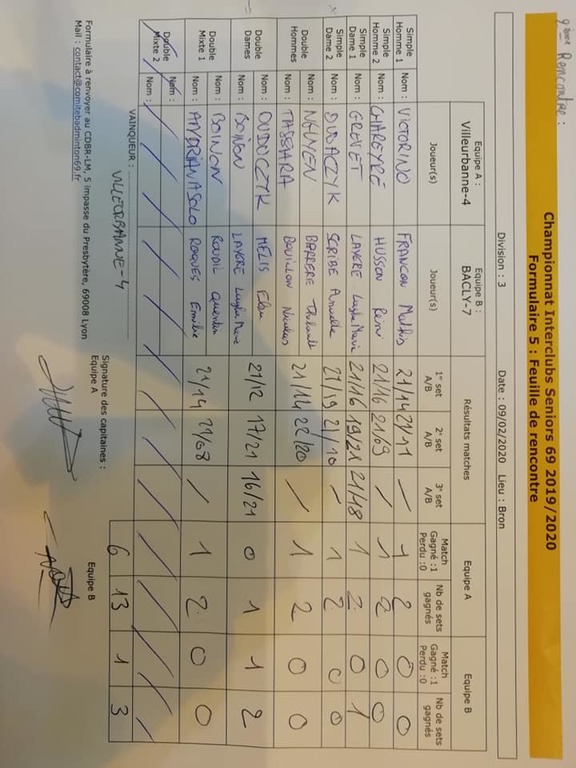 9ème Rencontre :
Championnat Interclubs Seniors 69 2019/2020
Formulaire 5 : Feuille de rencontre
Division : 3 Date : 09/02/2020 Lieu : Bron
Equipe A : Villeurbanne-4 Equipe B : BACLY-7 Résultats matches Equipe A Equipe B
Joueur(s) Joueur(s) 1° set A/B 2° set A/B 3° set A/B Match Gagné :1 Perdu :0 Nb de sets gagnés Match Gagné :1 Perdu :0 Nb de sets gagnés
Simple Homme 1 Nom : VICTORINO FRANCON Mathis 21/14 21/11 / 1 2 0 0
Simple Homme 2 Nom : CHAREYRE HUSSON Remi 21/16 21/09 / 1 2 0 0
Simple Dame 1 Nom : GREVET LAYGRE 21/16 19/21 21/18 1 2 0 1
Simple Dame 2 Nom : DUDACZYK SCRIBE Armelle 21/19 21/10 / 1 2 0 0
Double Hommes Nom : NGUYEN BARRERE Thibault 21/14 22/20 / 1 2 0 0
Nom : TASSARA Nicolas
Double Dames Nom : DUDACZYK MELIS 21/12 17/21 16/21 0 1 1 2
Nom : BOINON LAYGRE
Double Mixte 1 Nom : BOINON ROUDIL Quentin 21/14 21/08 / 1 2 0 0
Nom : ANDRIANASOLO ROQUES Emilie
Double Mixte 2 Nom :
Nom :
6 13 1 3
VAINQUEUR : VILLEURBANNE-4
Signature des capitaines :
Equipe A Equipe B
Formulaire à renvoyer au CDBR-LM, 5 impasse du Presbytère, 69008 Lyon
Mail : contact@comitebadminton69.fr